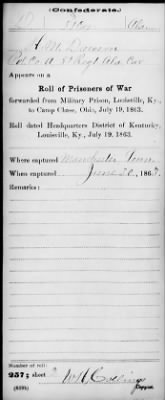 (Confederate.)
Appears on a
Roll of Prisoners of War
forwarded from Military Prison, Louisville, Ky.,
to Camp Chase, Ohio, July 19, 1863.
Roll dated Headquarters District of Kentucky,
Louisville, Ky., July 19, 1863.
Where captured Manchester Tenn
When captured June 30, 1863.
Remarks:
Number of roll:
257; sheet 2 W H Collins
Copyist.